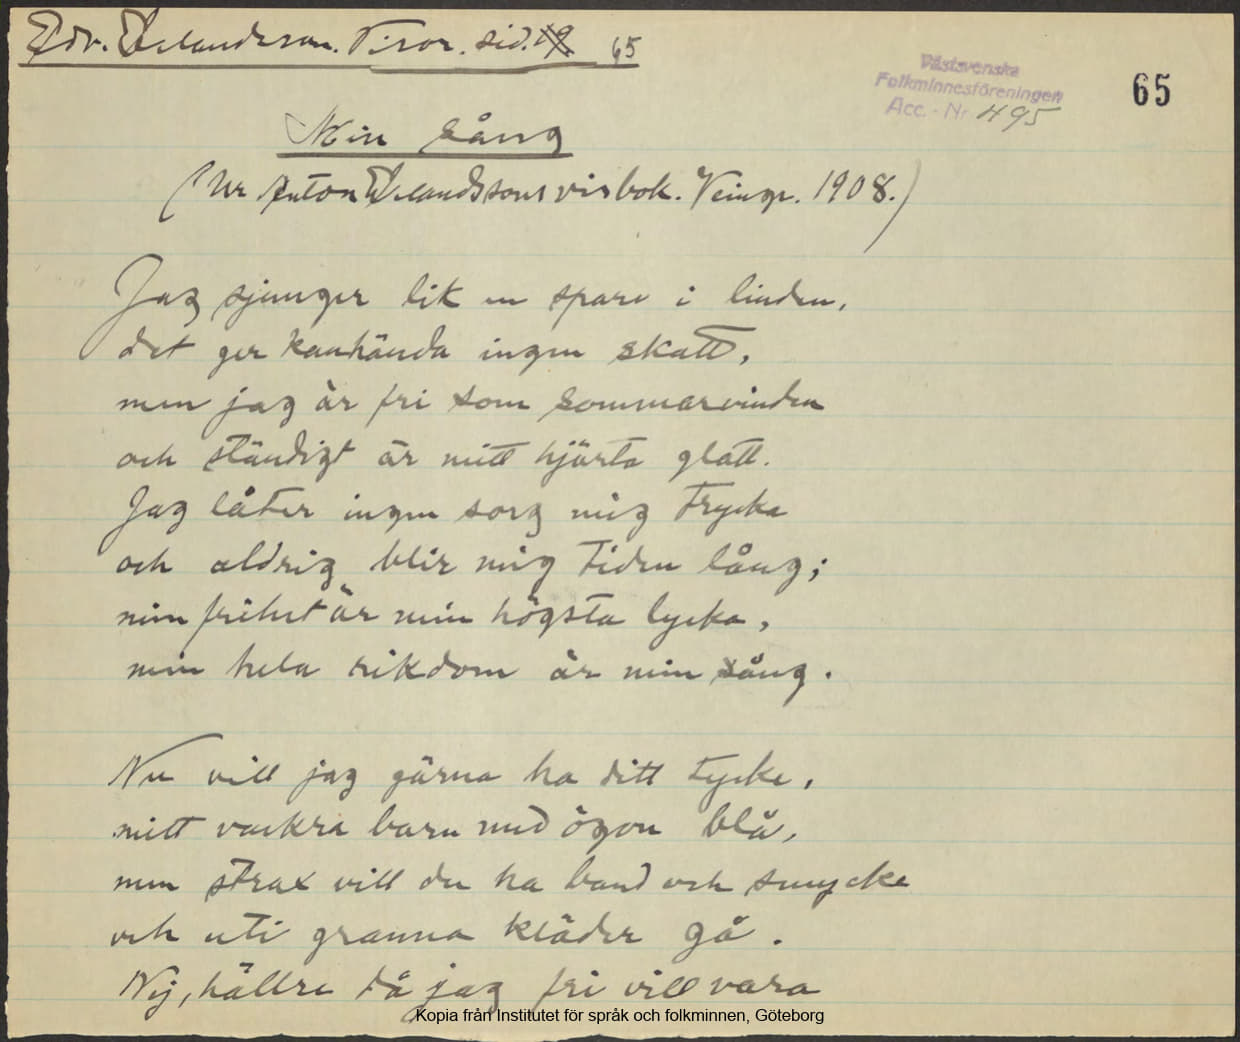 Edv. Velanderson. Visor. sid. 65
65
Västsvenska
Folkminnesföreningen
Acc. - Nr 495
Min sång
(Ur Anton Velandssons visbok. Veinge. 1908.)
Jag sjunger lik en sparv i linden,
det ger kanhända ingen skatt,
men jag är fri som sommarvinden
och ständigt är mitt hjärta glatt.
Jag låter ingen sorg mig trycka
och aldrig blir mig tiden lång;
min frihet är min högsta lycka,
min hela rikdom är min sång.
Nu vill jag gärna ha ditt tycke,
mitt vackra barn med ögon blå,
men strax vill du ha band och smycke
och uti granna kläder gå.
Nej, hällre då jag fri vill vara
Kopia från Institutet för språk och folkminnen, Göteborg